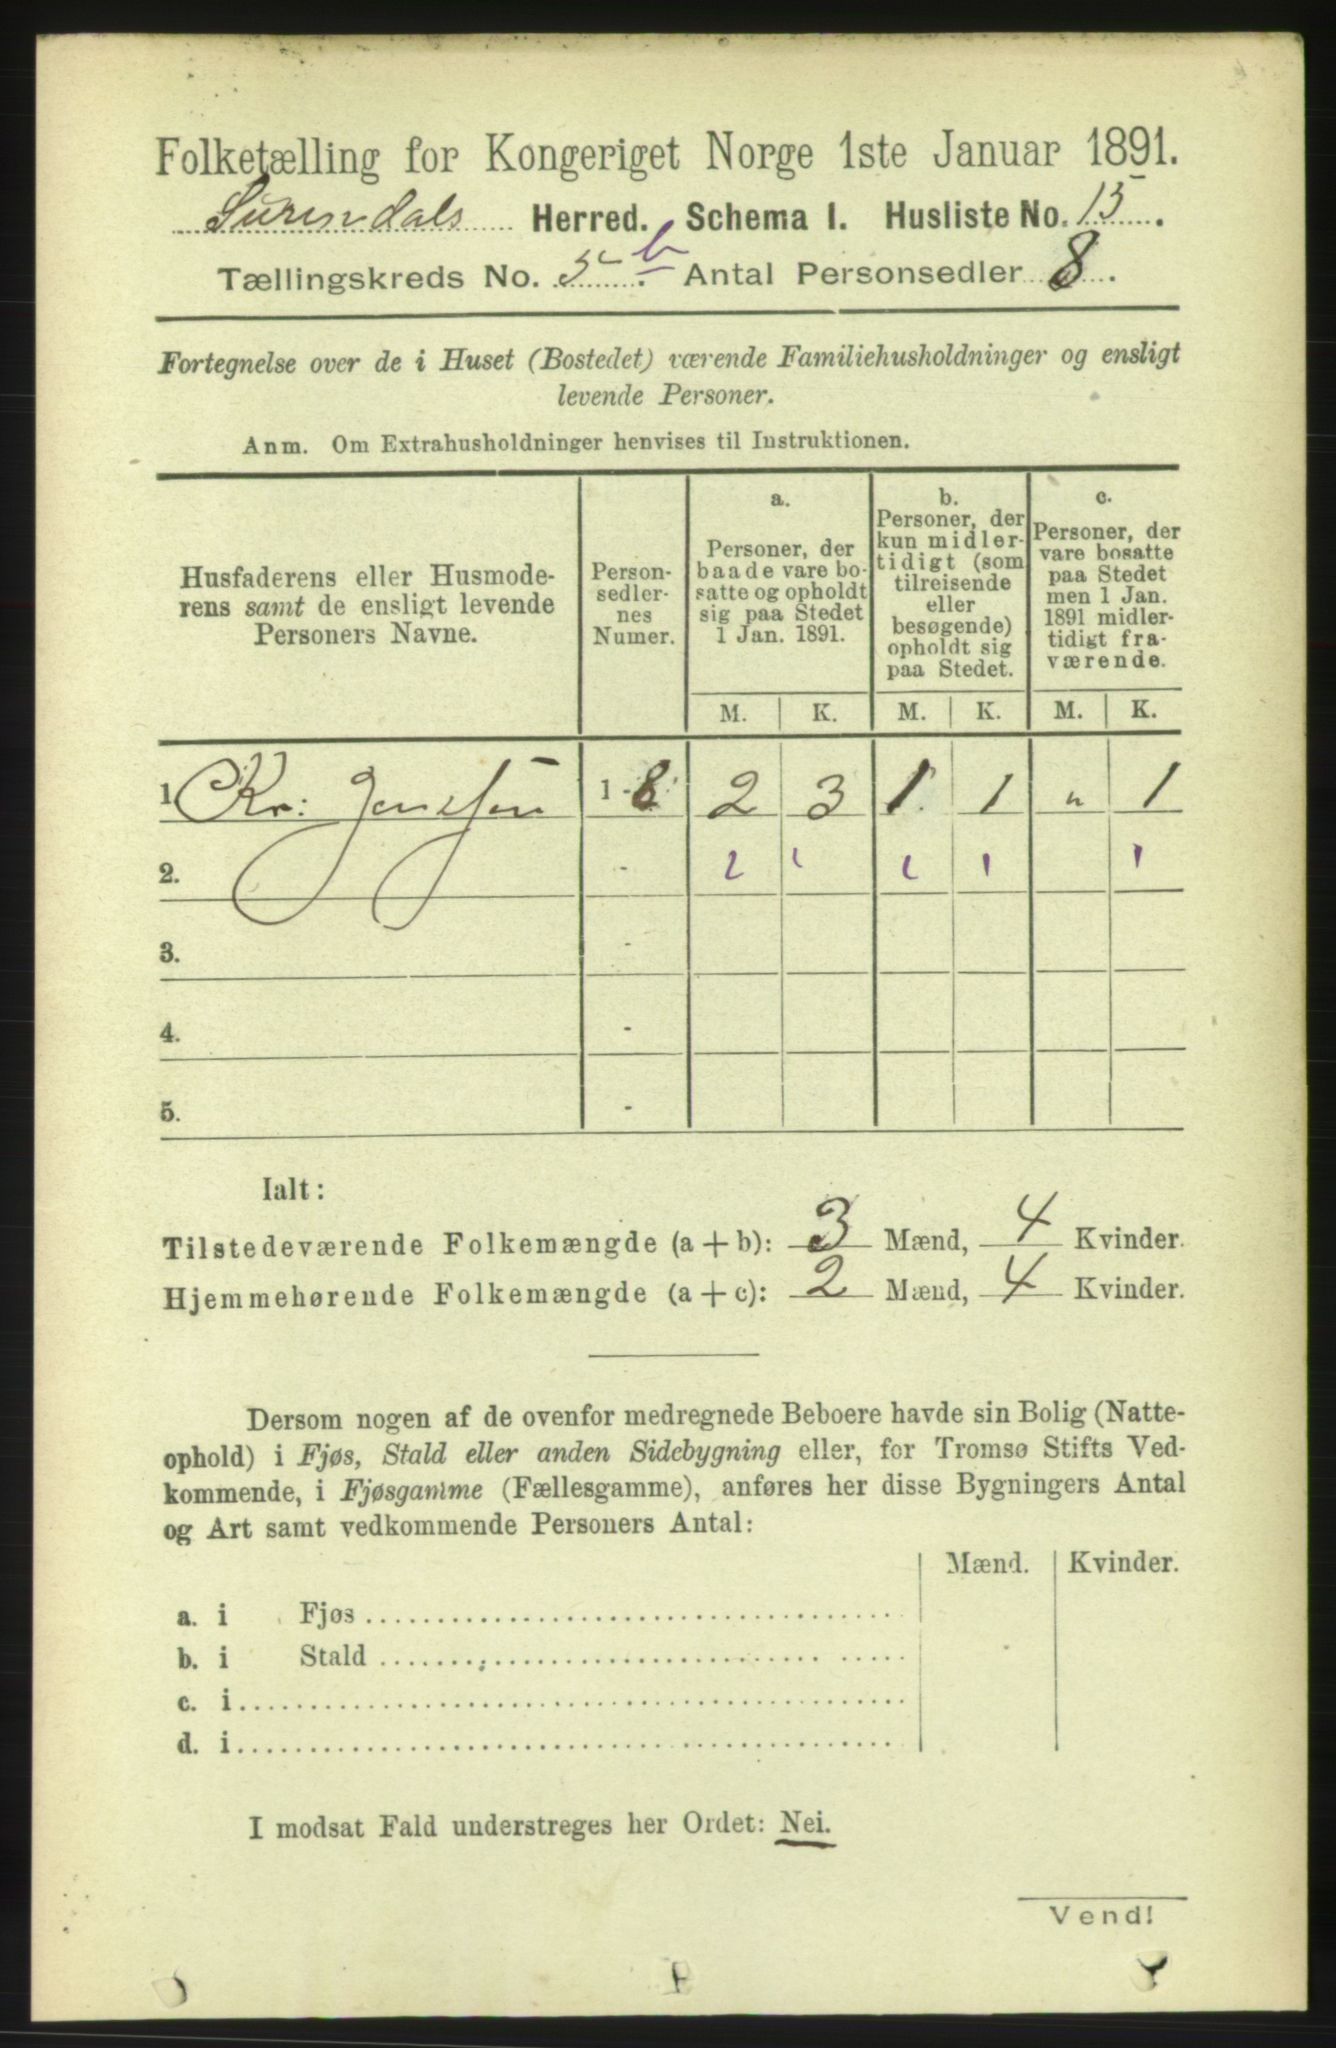 Folketælling for Kongeriget Norge 1ste Januar 1891.
Surendals Herred. Schema 1. Husliste No. 15.
Tællingskreds No. 5 b. Antal Personsedler 8.
Fortegnelse over de i Huset (Bostedet) værende Familiehusholdninger og ensligt
levende Personer.
Anm. Om Extrahusholdninger henvises til Instruktionen.
Husfaderens eller Husmode-
rens samt de ensligt levende
Personers Navne.
Person-
sedler-
nes
Numer.
a.
Personer, der
baade vare bo-
satte og opholdt
sig paa Stedet
1 Jan. 1891.
b.
Personer, der
kun midler-
tidigt (som
tilreisende
eller
besøgende)
opholdt sig
paa Stedet.
c.
Personer, der
vare bosatte
paa Stedet
men 1 Jan.
1891 midler-
tidigt fra-
værende.
M. K. M. K. M. K.
1 Kr: Jenssen 1 - 8 2 3 1. 1 " 1
2. - 2 1 1 1 1
3. -
4. -
5. -
Ialt:
Tilstedeværende Folkemængde (a + b): 3 Mænd, 4 Kvinder.
Hjemmehørende Folkemængde (a + c): 2 Mænd, 4 Kvinder.
Dersom nogen af de ovenfor medregnede Beboere havde sin Bolig (Natte-
ophold) i Fjøs, Stald eller anden Sidebygning eller, for Tromsø Stifts Ved-
kommende, i Fjøsgamme (Fællesgamme), anføres her disse Bygningers Antal
og Art samt vedkommende Personers Antal:
Mænd. Kvinder.
a. i Fjøs
b. i Stald
c. i
d. i
I modsat Fald understreges her Ordet: Nei.
Vend!